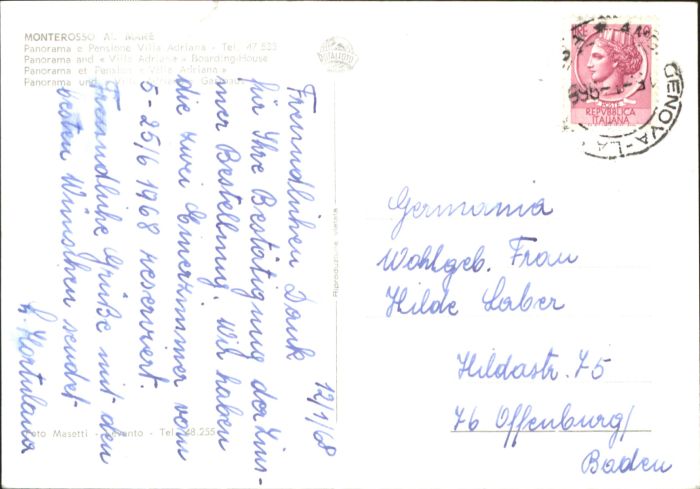 MONTEROSSO AL MARE
Panorama e Pensione Villa Adriana - Tel. 47 533
Panorama and « Villa Adriana » Boarding-House
Panorama et Pension « Villa Adriana »
Panorama und
12/1/68
Freundlichen Dank
für Ihre Bestätigung der Zim-
mer Bestellung. Wir haben
die zwei Einerzimmer vom
5-25/6 1968 reserviert.
Freundliche Grüße mit den
besten Wünschen sendet
Hortulana
Foto Masetti - Levanto - Tel. 48.255
Riproduzione vietata
POSTE
REPVBBLICA
ITALIANA
GENOVA-LA
Germania
Wohlgeb. Frau
Hilde Laber
Hildastr. 75
76 Offenburg/
Baden